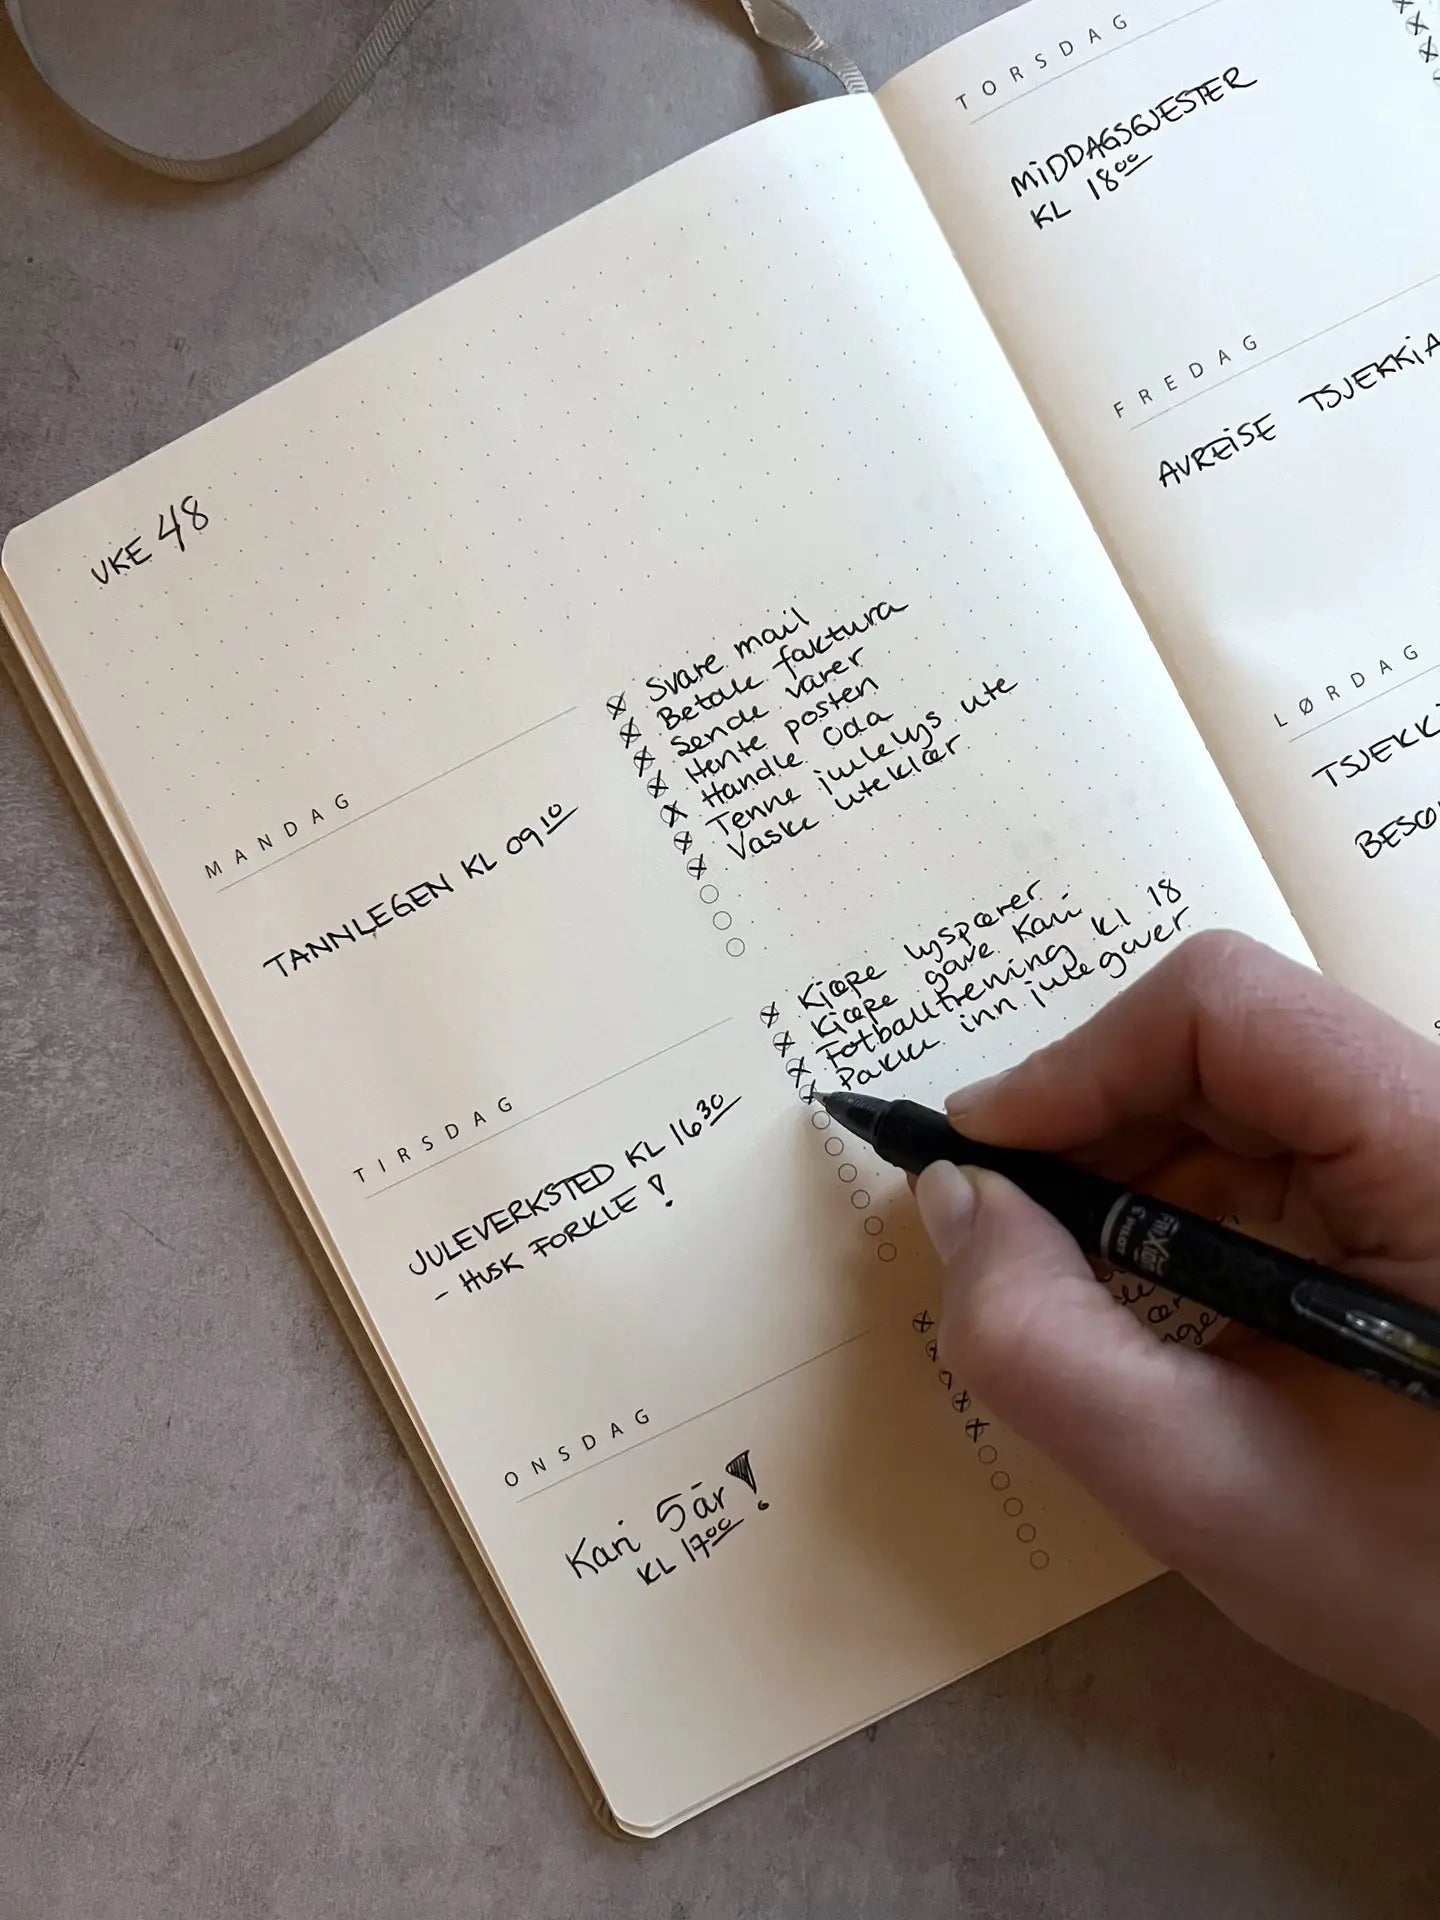 UKE 48
MANDAG
TANNLEGEN KL 09 10
Svare mail
Betale faktura
Sende varer
Hente posten
Handle Oda
Tenne julelys ute
Vaske uteklær
TIRSDAG
JULEVERKSTED KL 16 30
- HUSK FORKLE!
Kjøpe lyspærer
Kjøpe gave Kari
Fotballtrening kl 18
Pakke inn julegaver
ONSDAG
Kari 5 år!
KL 17 00
TORSDAG
MIDDAGSGJESTER
KL 18 00
FREDAG
AVREISE TSJEKKIA
LØRDAG
TSJEKKI
BESØ
FRIXION
PILOT